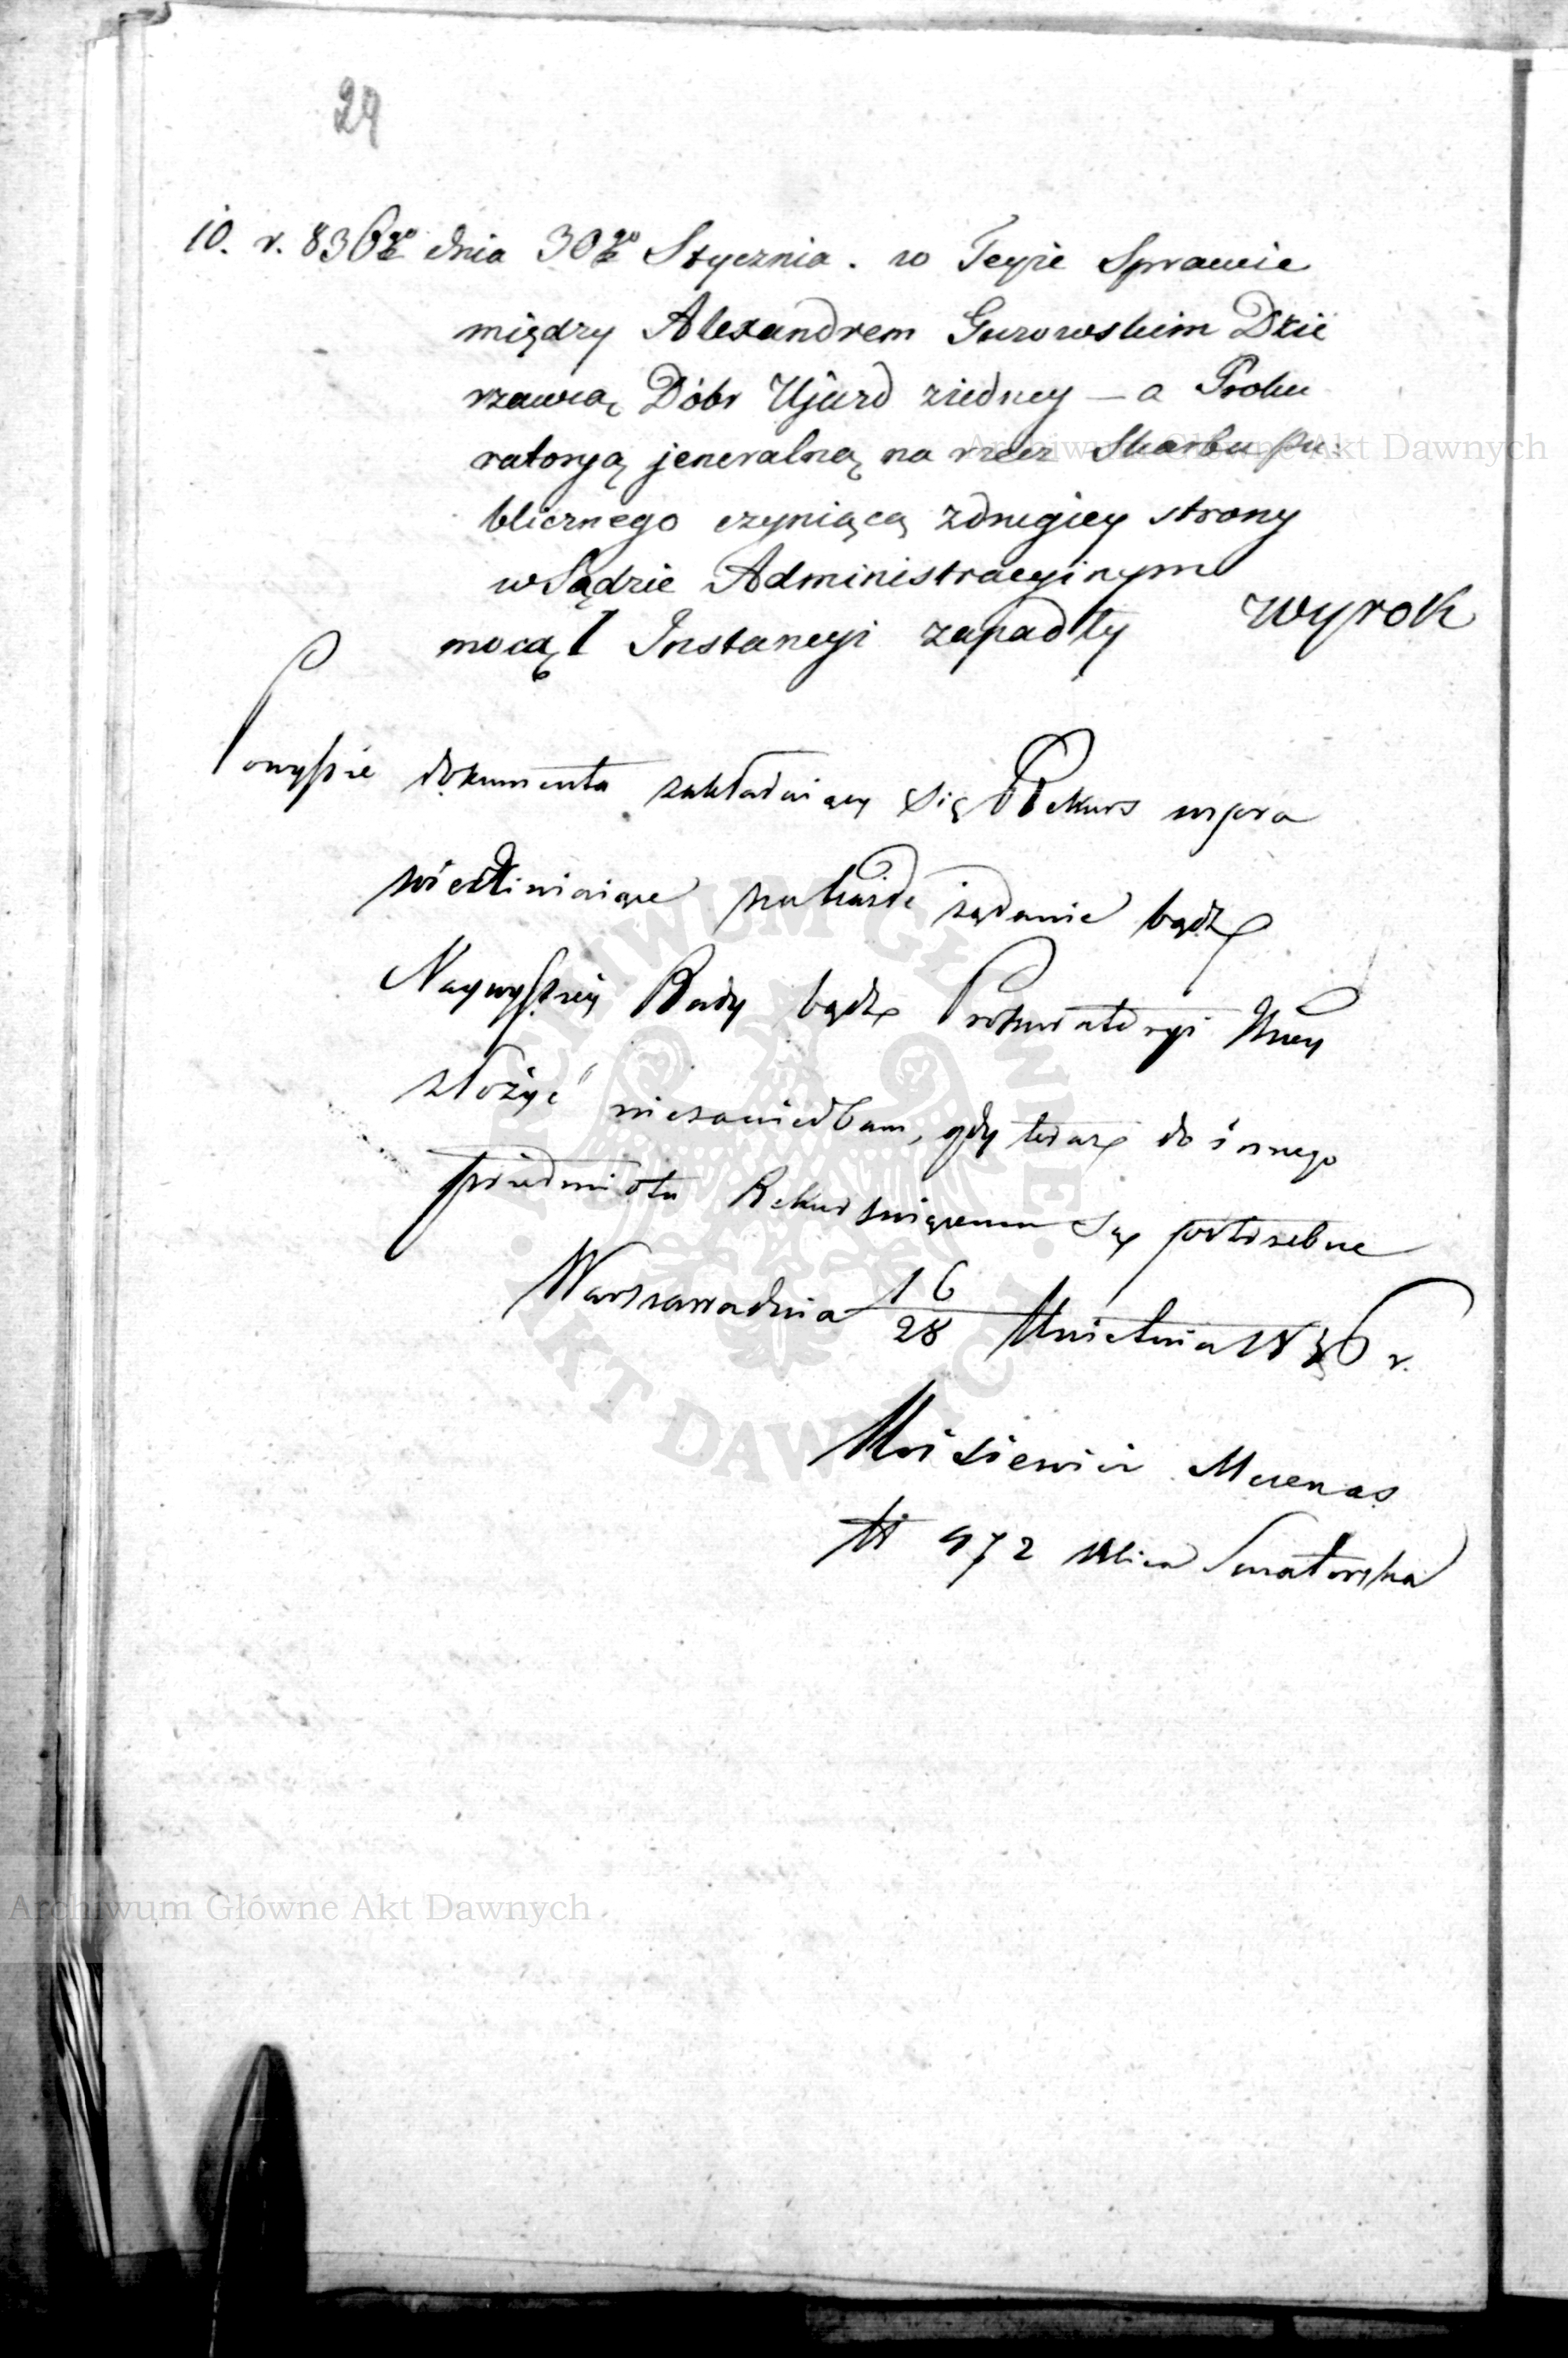 29
10. r. 836go dnia 30go Stycznia. w Teyże Sprawie
między Alexandrem Gurowskim Dzie
rzawcą Dóbr Ujazd ziedney — a Proku
ratoryą jeneralną na rzecz Skarbu Pu:
blicznego czyniącą zdrugiey strony
w Sądzie Administracyinym
mocą I Instancyi zapadły wyrok
Powyższe dokumenta zakładaiący się Rekurs uspra
wiedliwiaiące na każde żądanie bądź
Naywyższey Rady bądź Prokuratoryi
złożyć niezaniedbam, gdy teraz do innego
przedmiotu Rekurs są potrzebne
Warszawa dnia 16/28 Kwietnia 1836 r.
Mecenas
N 472 ulica Senatorska
Archiwum Główne Akt Dawnych
ARCHIWUM GŁÓWNE AKT DAWNYCH
Archiwum Główne Akt Dawnych